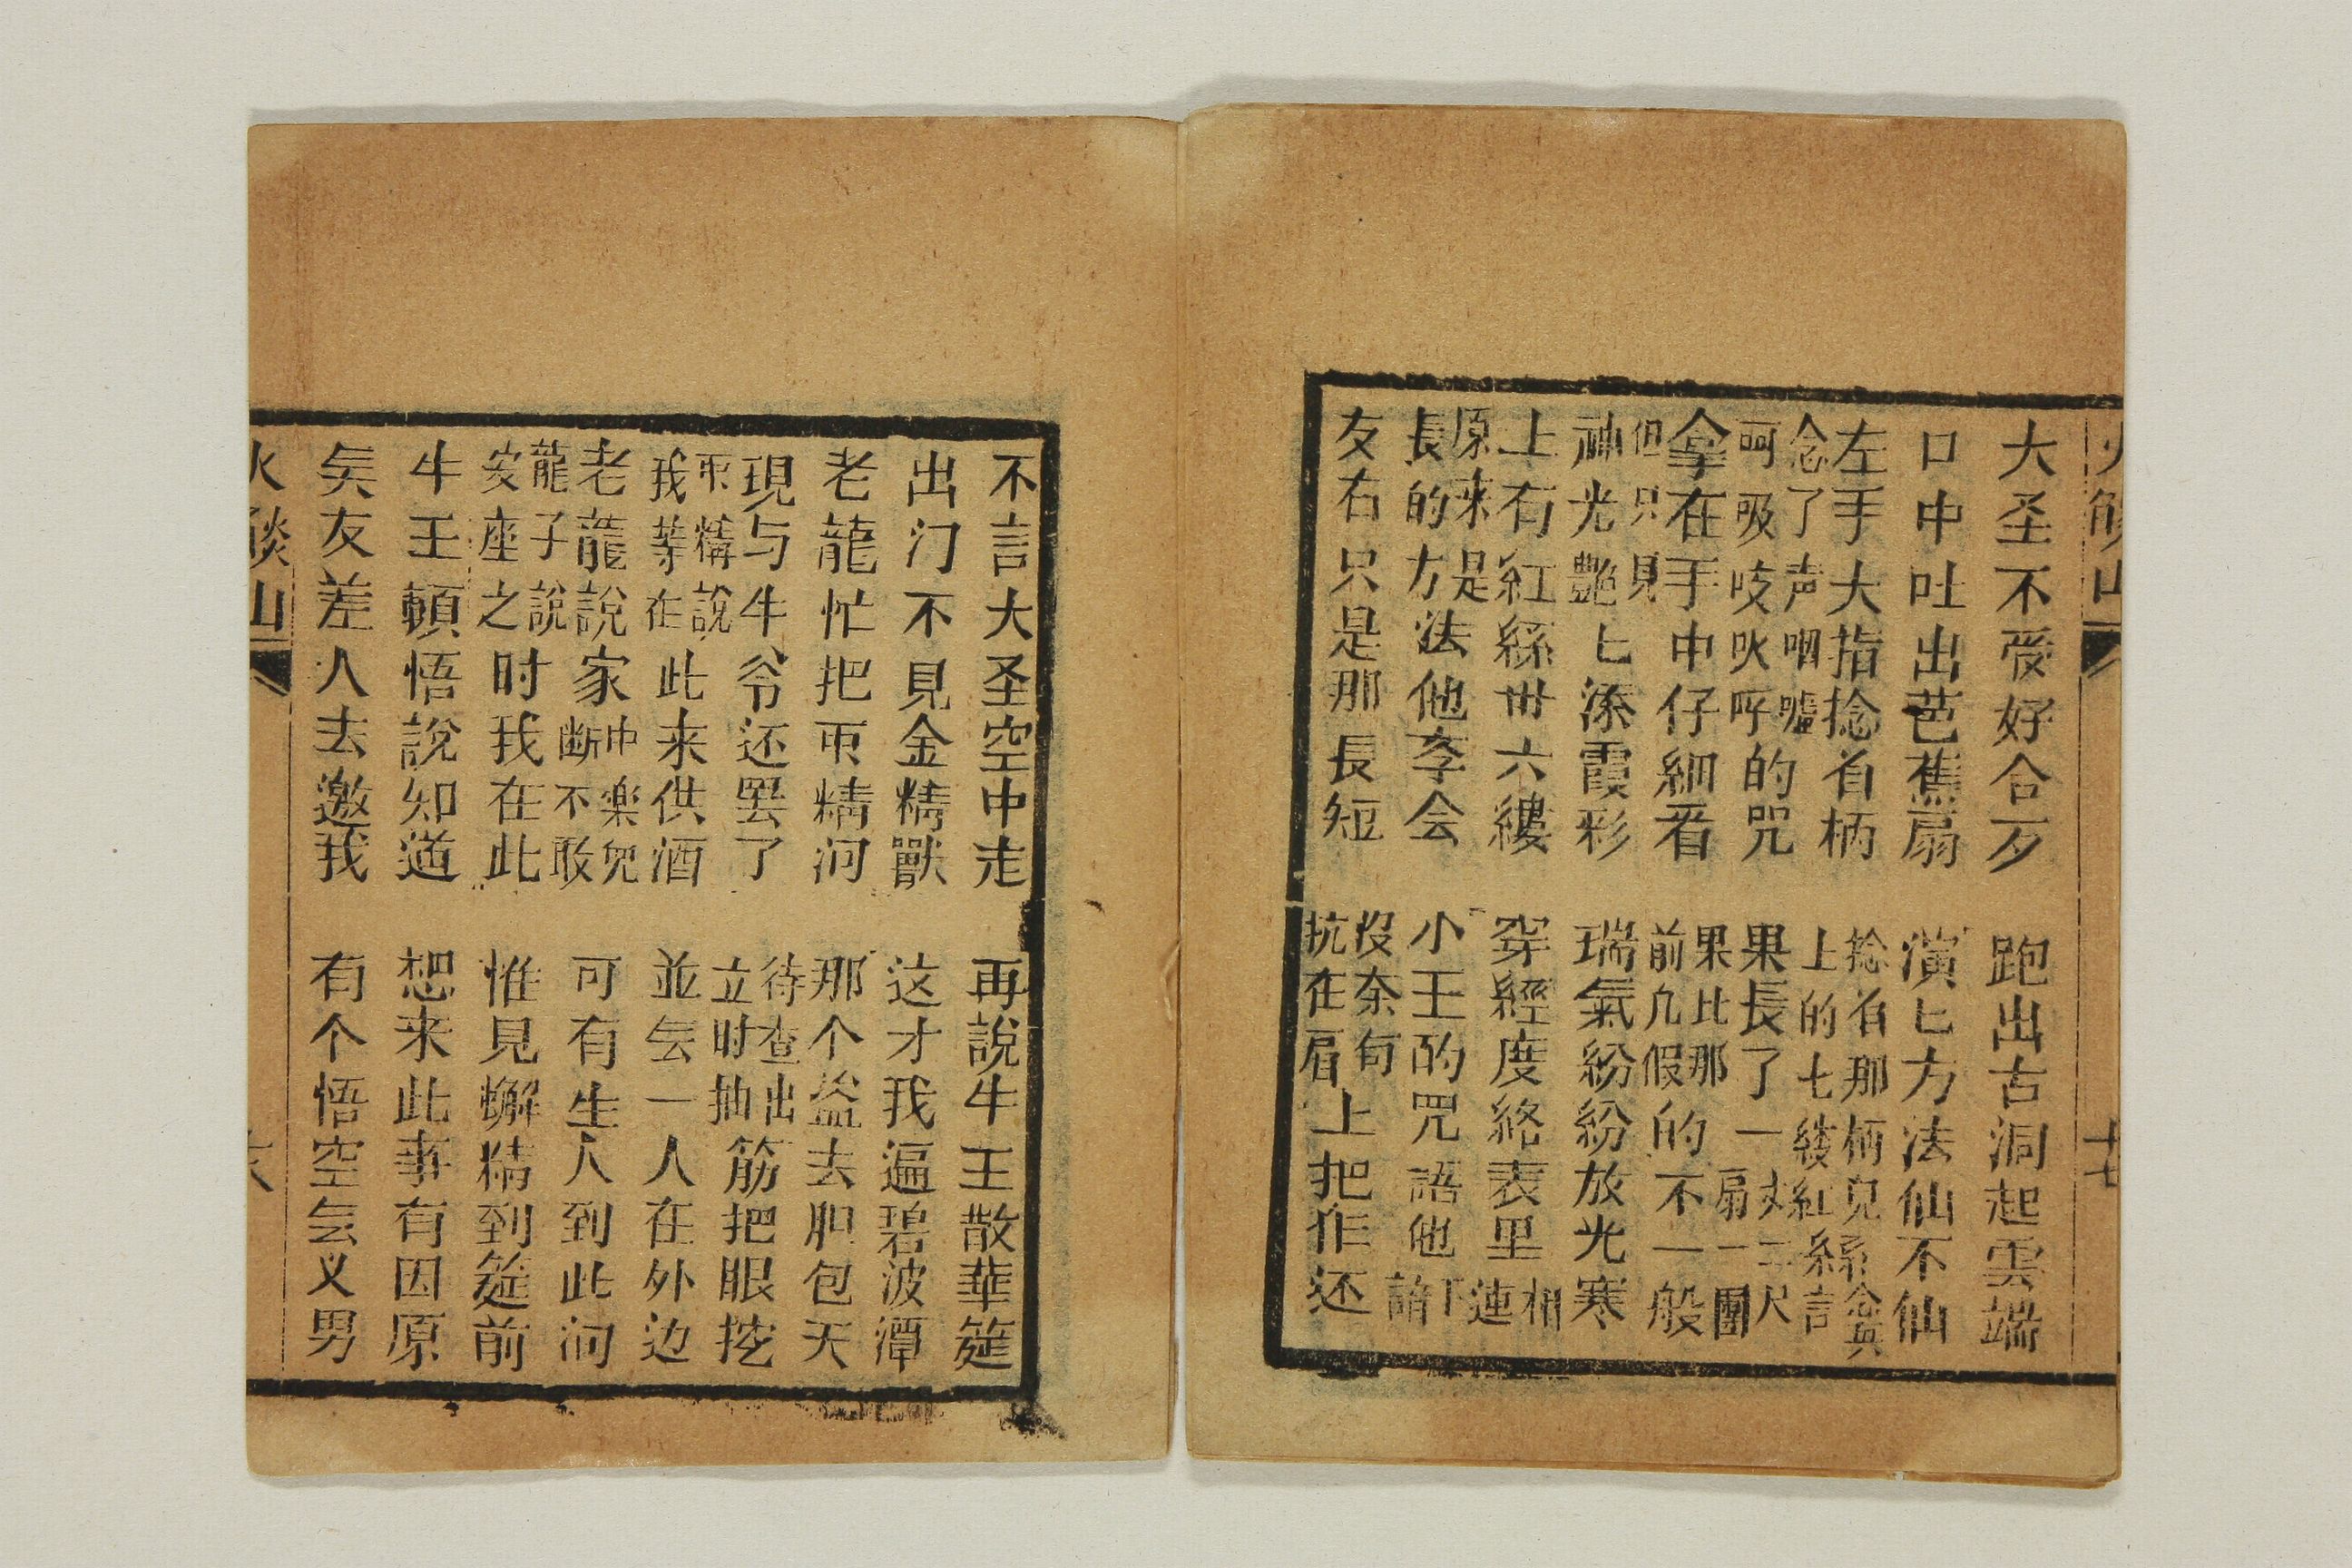 大圣不受好合歹　跑出古洞起雲端
口中吐出芭蕉扇　演匕方法仙不仙
左手大指捻着柄　捻着那柄兒上的七縷紅絲
念了声咽嘘呵吸吱吹呼的咒　果長了一丈二尺
拿在手中仔細看　果比那前几假的不一般
但只見神光艷匕添霞彩　瑞氣紛紛放光寒
上有紅絲卅六縷　穿經度絡表里相連
原来是長的方法他李会　小王的咒語他
友右只是那長短　沒奈何抗在肩上把作还
不言大圣空中走　再說牛王散華筵
出门不見金精獸　这才我遍碧波潭
老龍忙把帀精问　那个盜去胆包天
現与牛爷还罢了　待查出立时抽筋把眼挖
帀精說我等在此来供酒　並佥一人在外边
老龍說家中樂兜断不敢　可有生人到此问
龍子說安座之时我在此　惟見蠏精到筵前
牛王頓悟說知道　想来此事有因原
矣友差人去邀我　有个悟空佥义男
火燄山
六